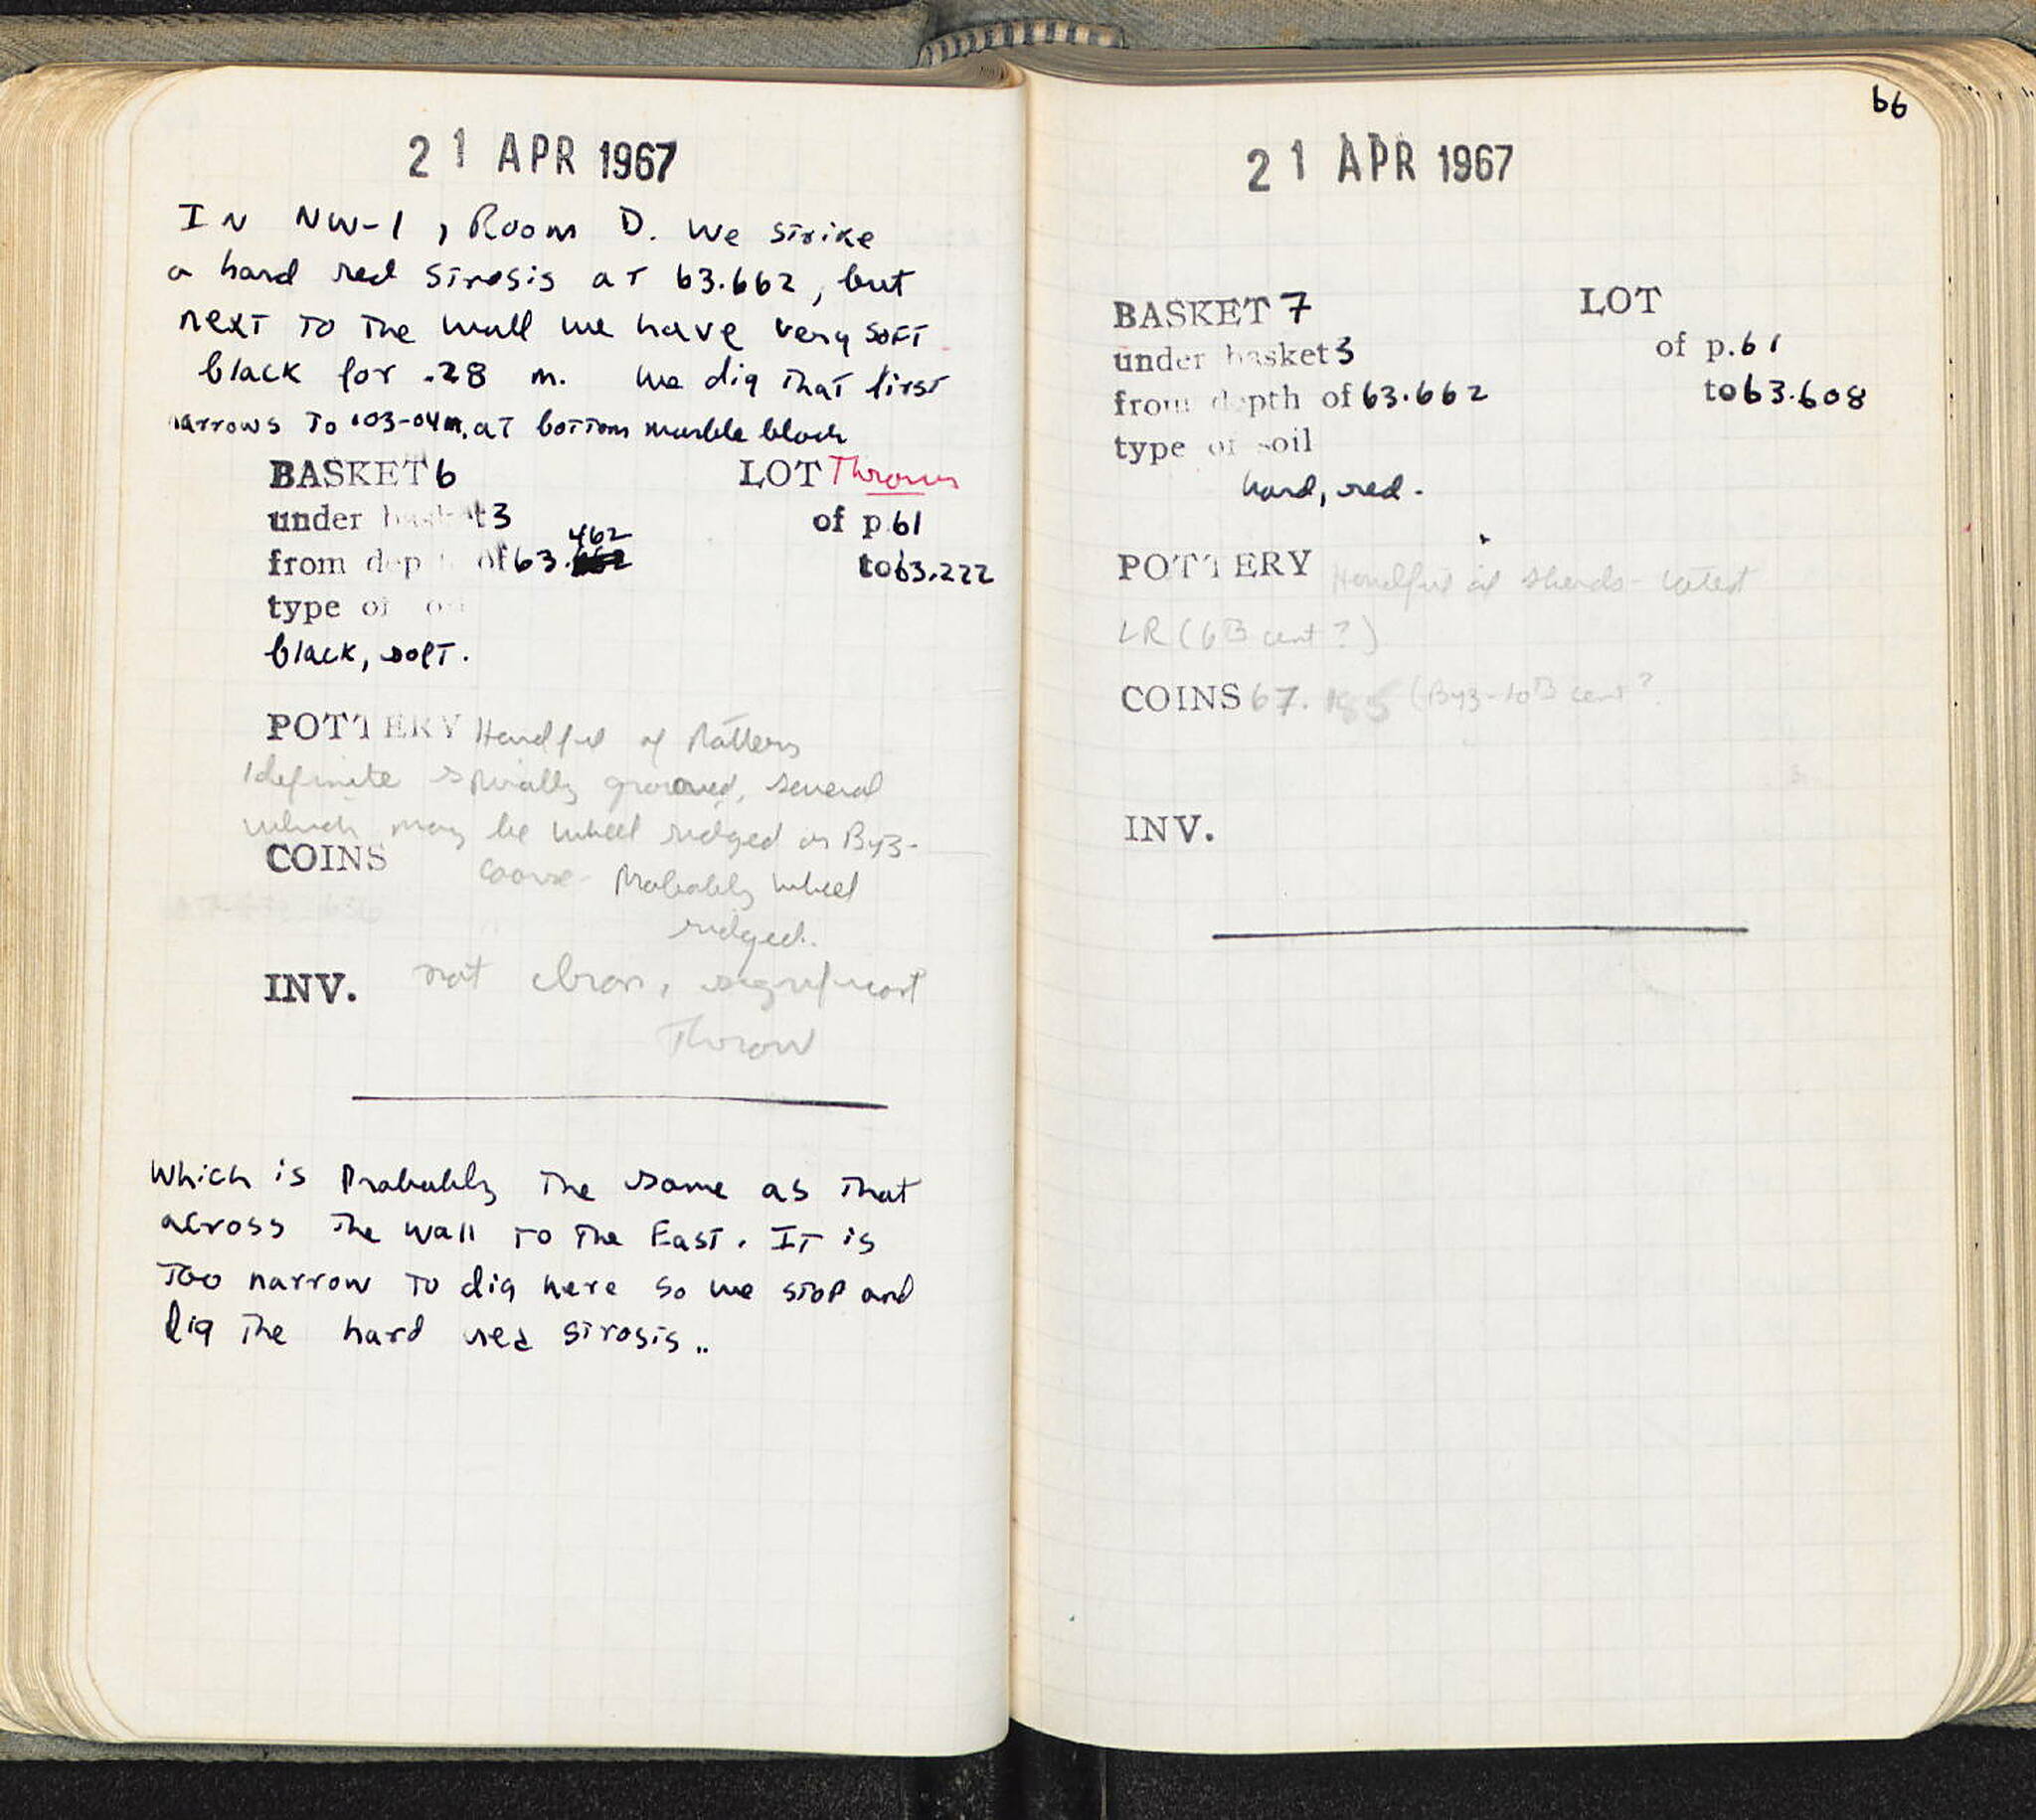 21 APR 1967
IN NW-1, Room D. We strike
a hard red strosis at 63.662, but
next to the wall we have very soft
black for .28 m. We dig that first
narrows to .03-04m. at bottom marble block
BASKET 6 LOT Thrown
under basket 3 of p. 61
from depth of 63.462 to 63.222
type of soil
black, soft.
POTTERY Handful of Pattern
1 definite spirally grooved, several
which may be wheel ridged or Byz-
COINS coarse - Probably wheel
ridged.
INV. not significant
Throw
Which is Probably the same as that
across the wall to the East. It is
Too narrow to dig here so we stop and
dig the hard red strosis..
66
21 APR 1967
BASKET 7 LOT
under basket 3 of p. 61
from depth of 63.662 to 63.608
type of soil
hard, red.
POTTERY Handful of sherds - latest
LR (6th cent?)
COINS 67. 155 (Byz - 10th cent?
INV.